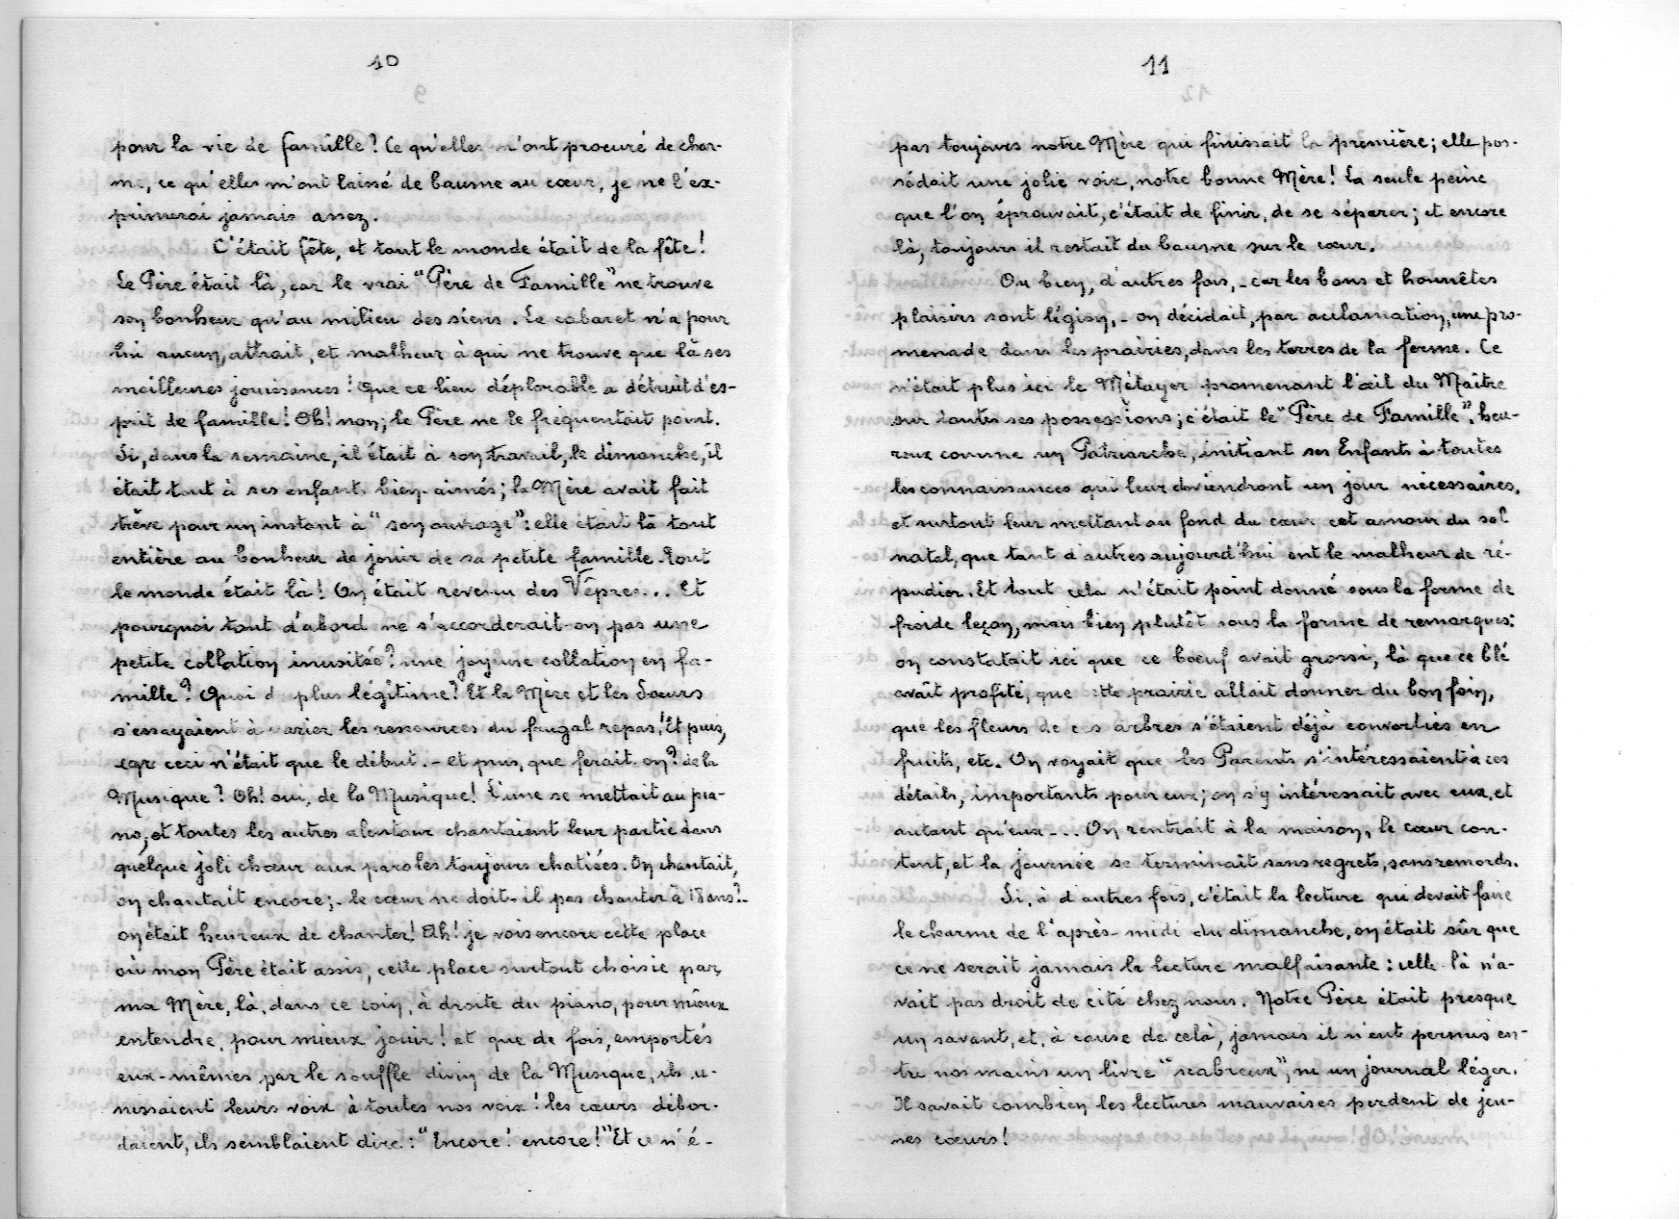 10
pour la vie de famille? Ce qu'elles m'ont procuré de char-
me, ce qu'elles m'ont laissé de baume au cœur, je ne l'ex-
primerai jamais assez.
C'était fête, et tout le monde était de la fête!
Le Père était là, car le vrai "Père de Famille" ne trouve
son bonheur qu'au milieu des siens. Le cabaret n'a pour
lui aucun, attrait, et malheur à qui ne trouve que là ses
meilleures jouissances! Que ce lieu déplorable a détruit d'es-
prit de famille! Oh! non; le Père ne le fréquentait point.
Si, dans la semaine, il était à son travail, le dimanche, il
était tout à ses enfants bien-aimés; la Mère avait fait
trêve pour un instant à "son ouvrage": elle était là tout
entière au bonheur de jouir de sa petite famille. Tout
le monde était là! On était revenu des Vêpres... Et
pourquoi tout d'abord ne s'accorderait-on pas une
petite collation inusitée? une joyeuse collation en fa-
mille? Quoi d plus légitime? Et la Mère et les Sœurs
s'essayaient à varier les ressources du frugal repas! Et puis,
car ceci n'était que le début. - et puis, que ferait-on? de la
Musique? Oh! oui, de la Musique! L'une se mettait au pia-
no, et toutes les autres alentour chantaient leur partie dans
quelque joli chœur aux paroles toujours chatiées. On chantait,
on chantait encore; - le cœur ne doit-il pas chanter à 18 ans? -
on était heureux de chanter! Ah! je vois encore cette place
où mon Père était assis, cette place surtout choisie par
ma Mère, là, dans ce coin, à droite du piano, pour mieux
entendre, pour mieux jouir! et que de fois, emportés
eux-mêmes par le souffle divin de la Musique, ils u-
nissaient leurs voix à toutes nos voix! les cœurs débor-
daient, ils semblaient dire: "Encore! encore!" Et ce n'é-
11
pas toujours notre Mère qui finissait la première; elle pos-
sédait une jolie voix, notre bonne Mère! La seule peine
que l'on éprouvait, c'était de finir, de se séparer; et encore
là, toujours il restait du baume sur le cœur.
Ou bien, d'autres fois, - car les bons et honnêtes
plaisirs sont légion, - on décidait, par acclamation, une pro-
menade dans les prairies, dans les terres de la ferme. Ce
n'était plus ici le Métayer promenant l'œil du Maître
sur toutes ses possessions; c'était le "Père de Famille", heu-
reux comme un Patriarche, initiant ses Enfants à toutes
les connaissances qui leur deviendront un jour nécessaires,
et surtout leur mettant au fond du cœur cet amour du sol
natal, que tant d'autres aujourd'hui ont le malheur de ré-
pudier. Et tout cela n'était point donné sous la forme de
froide leçon, mais bien plutôt sous la forme de remarques:
on constatait ici que ce bœuf avait grossi, là que ce blé
avait profité, que cette prairie allait donner du bon foin,
que les fleurs de ces arbres s'étaient déjà converties en
fruits, etc. On voyait que les Parents s'intéressaient à ces
détails, importants pour eux; on s'y intéressait avec eux, et
autant qu'eux... On rentrait à la maison, le cœur con-
tent, et la journée se terminait sans regrets, sans remords.
Si, à d'autres fois, c'était la lecture qui devait faire
le charme de l'après-midi du dimanche, on était sûr que
ce ne serait jamais la lecture malfaisante: celle-là n'a-
vait pas droit de cité chez nous. Notre Père était presque
un savant, et, à cause de celà, jamais il n'eut permis en-
tre nos mains un livre "scabreux", ni un journal léger.
Il savait combien les lectures mauvaises perdent de jeu-
nes cœurs!